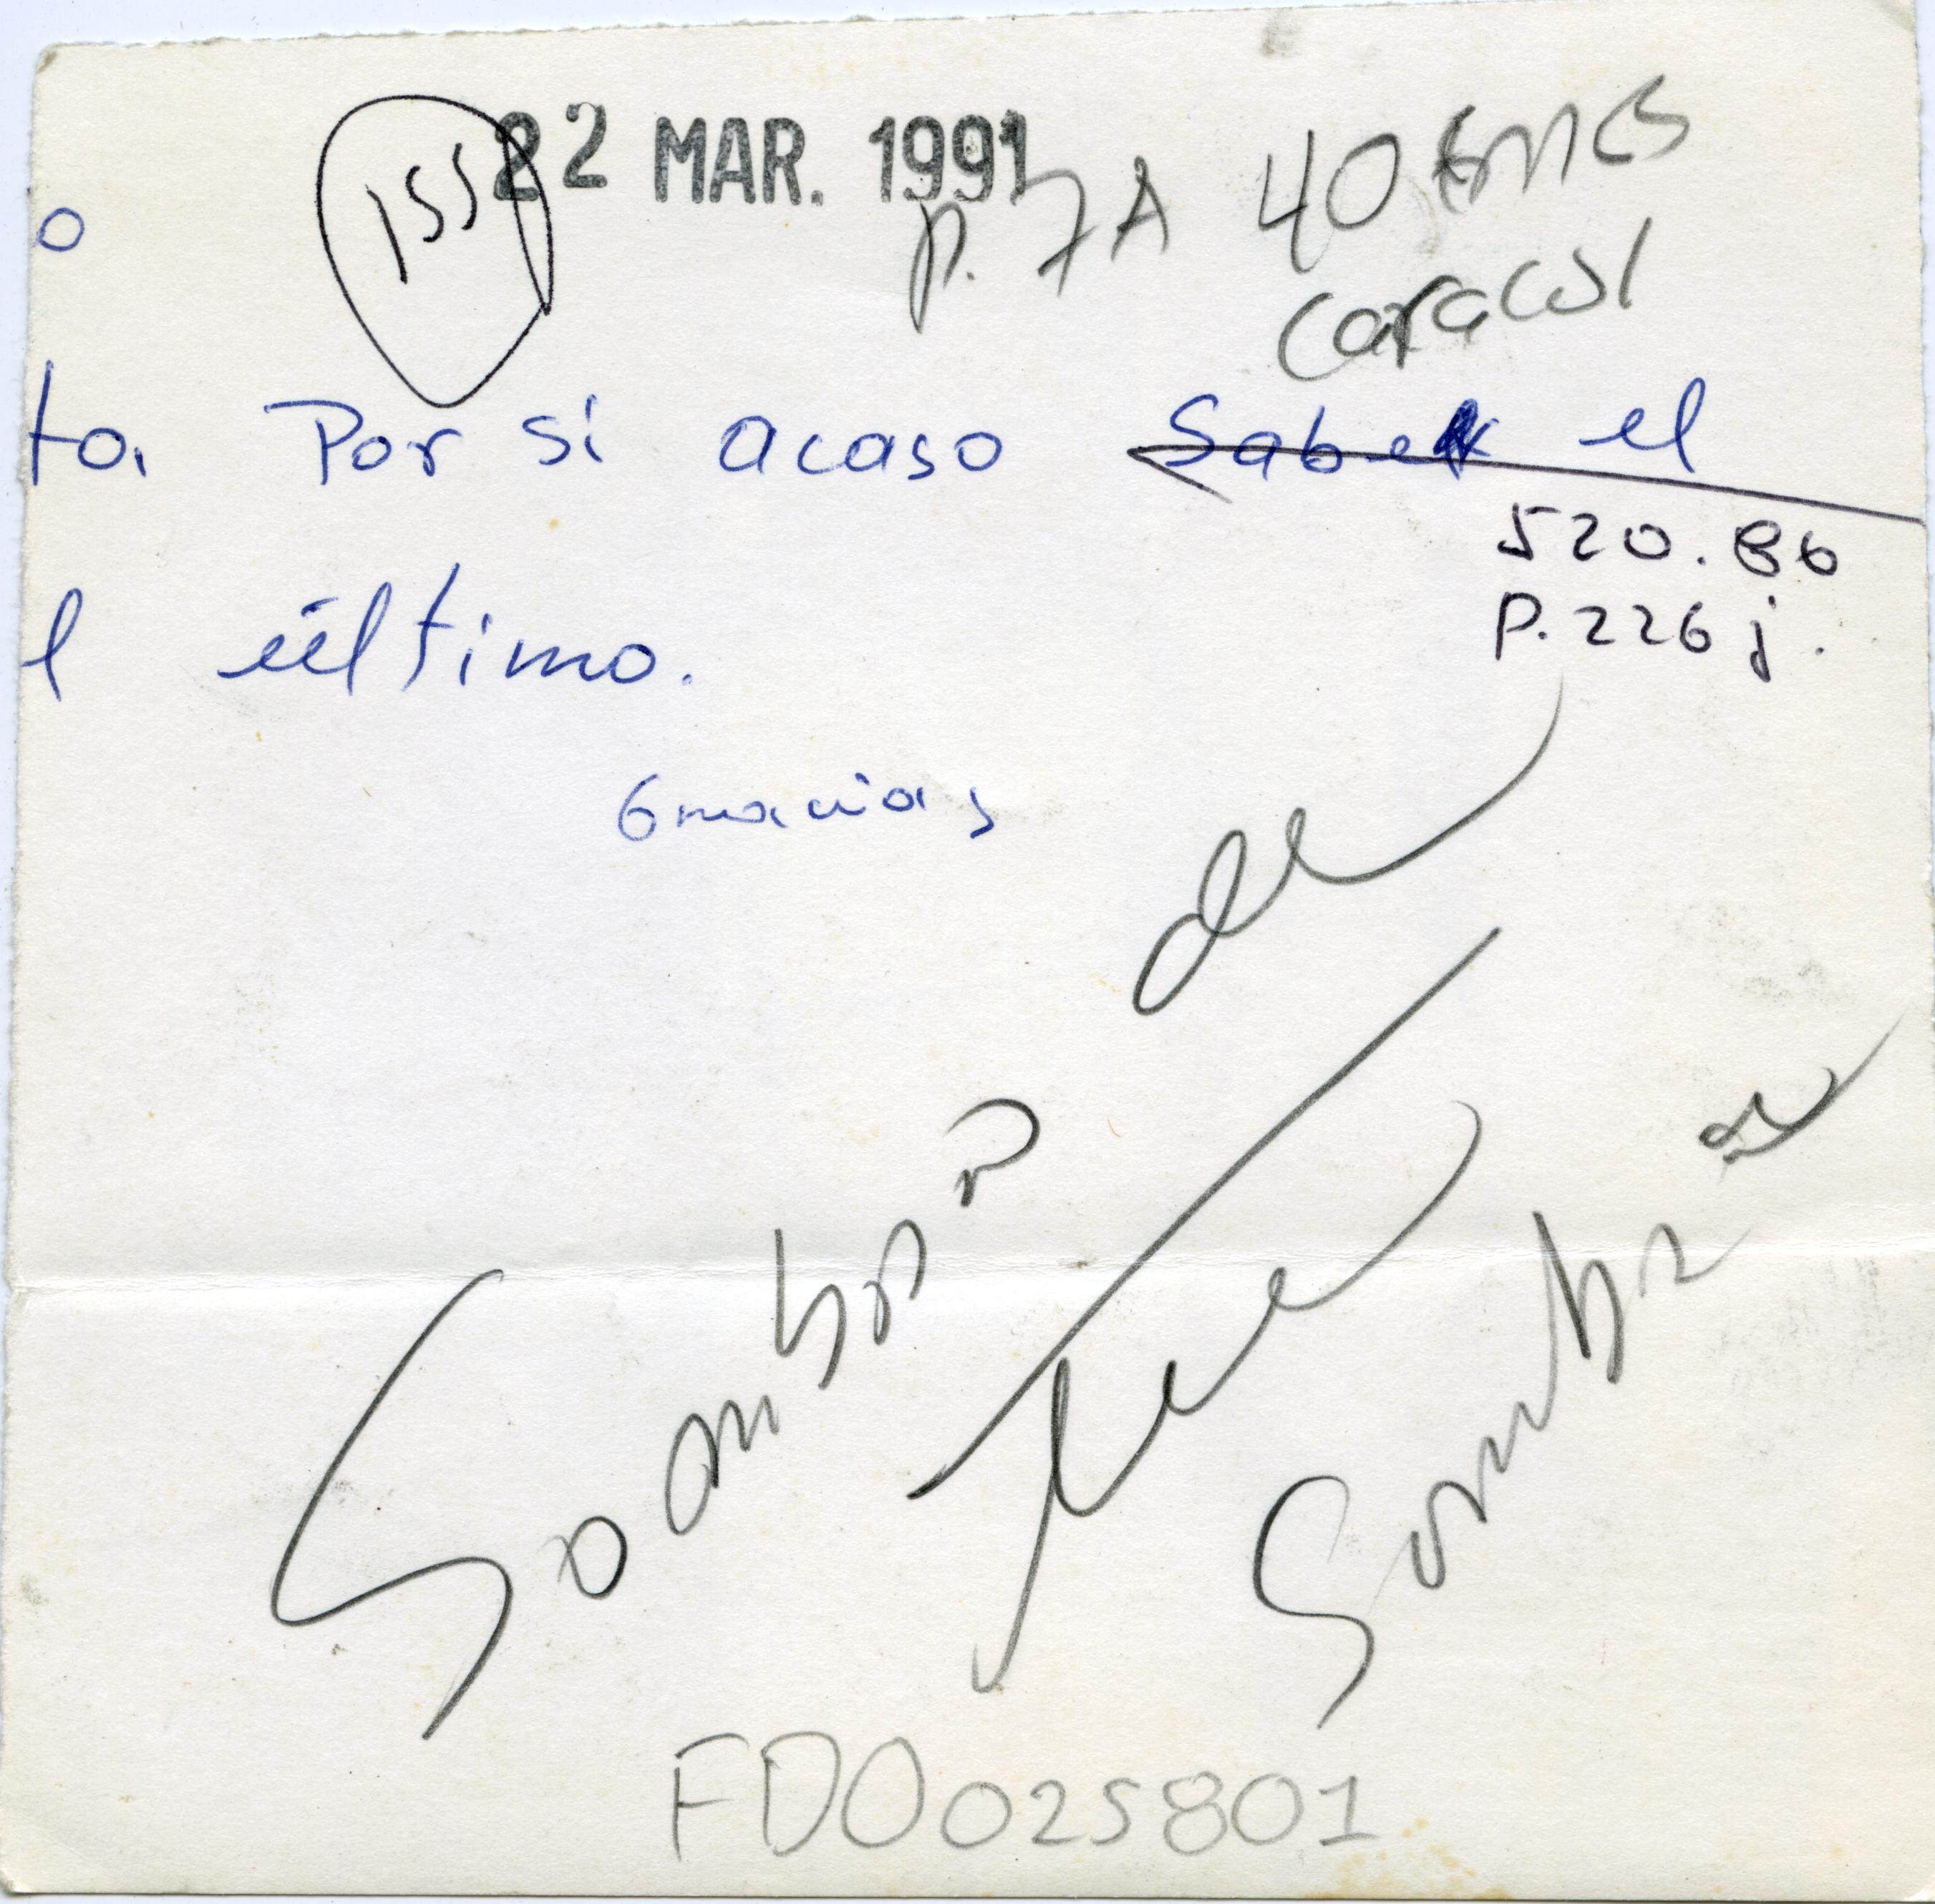 22 MAR. 1991
155
p. 7A 40
caracol
o
ta. Por si acaso Sabe el
520.86
p. 226 j.
l último.
Gracias
Sombra de
Sombra
FDO025801